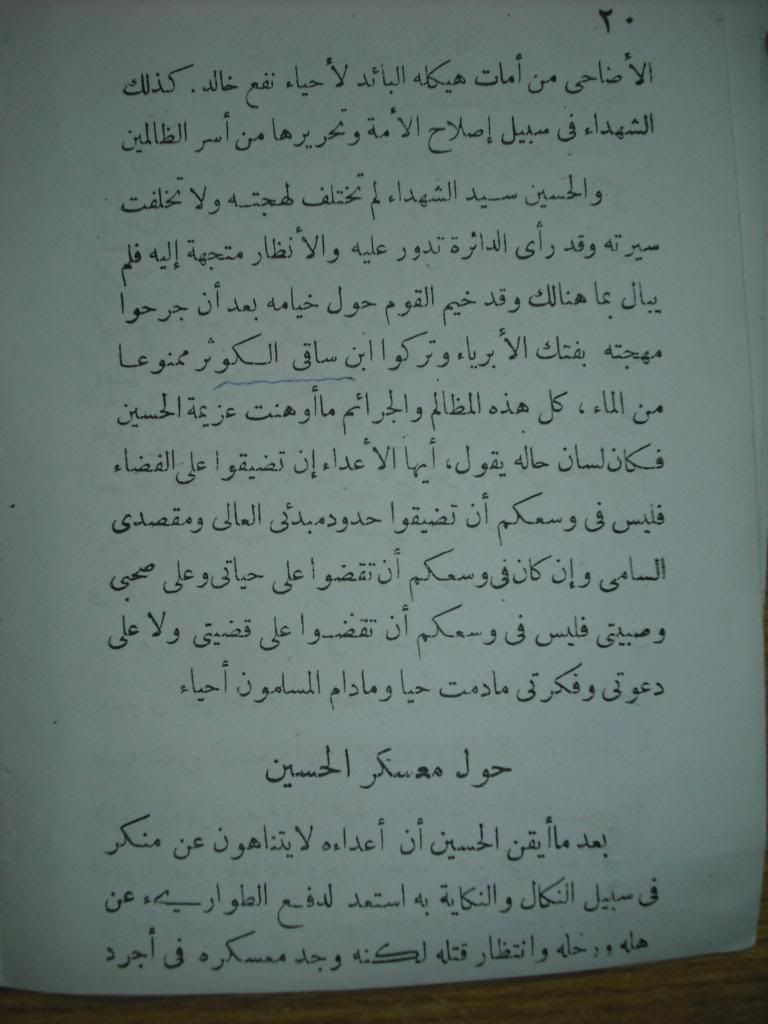 ٢٠
الأضاحى من أمات هيكله البائد لأحياء نفع خالد . كذلك
الشهداء فى سبيل إصلاح الأمة وتحريرها من أسر الظالمين
والحسين سيد الشهداء لم تختلف لهجته ولا تخلفت
سيرته وقد رأى الدائرة تدور عليه والأنظار متجهة إليه فلم
يبال بما هنالك وقد خيم القوم حول خيامه بعد أن جرحوا
مهجته بفتك الأبرياء وتركوا ابن ساقى الكوثر ممنوعا
من الماء ، كل هذه المظالم والجرائم ماأوهنت عزيمة الحسين
فكان لسان حاله يقول، أيها الأعداء إن تضيقوا على الفضاء
فليس فى وسعكم أن تضيقوا حدود مبدئى العالى ومقصدى
السامى وإن كان فى وسعكم أن تقضوا على حياتى وعلى صحبى
وصبيتى فليس فى وسعكم أن تقضوا على قضيتى ولا على
دعوتى وفكرتى مادمت حيا ومادام المسلمون أحياء
حول معسكر الحسين
بعد ماأيقن الحسين أن أعداءه لايتناهون عن منكر
فى سبيل النكال والنكاية به استعد لدفع الطوارىء عن
هله ورحله وانتظار قتله لكنه وجد معسكره فى أجرد